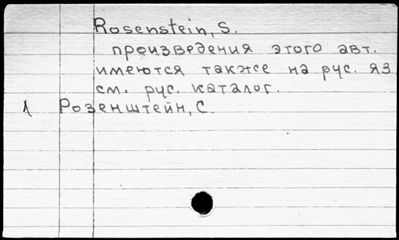 Rosenstein, S.
произведения этого авт.
имеются также на рус. яз
см. рус. каталог.
1 Розенштейн, С.